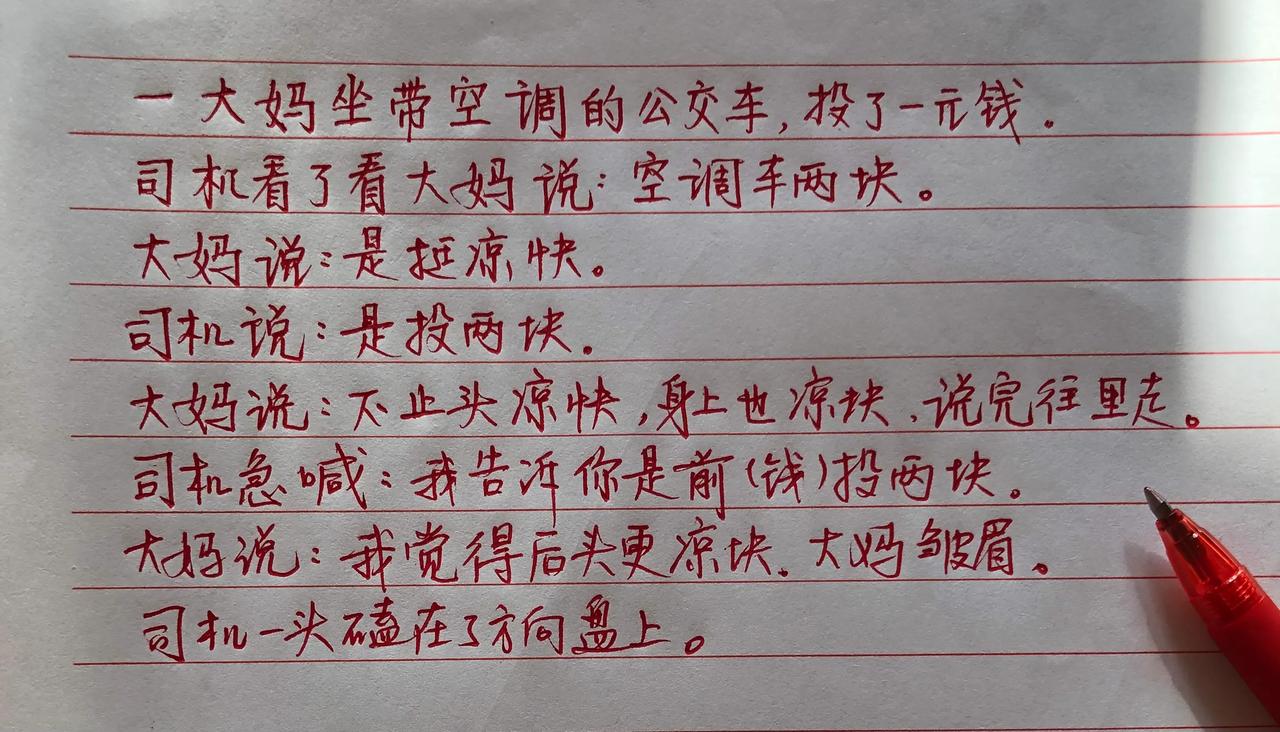 一大妈坐带空调的公交车,投了一元钱.
司机看了看大妈说:空调车两块。
大妈说:是挺凉快。
司机说:是投两块.
大妈说:不止头凉快,身上也凉块.说完往里走。
司机急喊:我告诉你是前(钱)投两块。
大妈说:我觉得后头更凉块.大妈皱眉。
司机一头磕在了方向盘上。